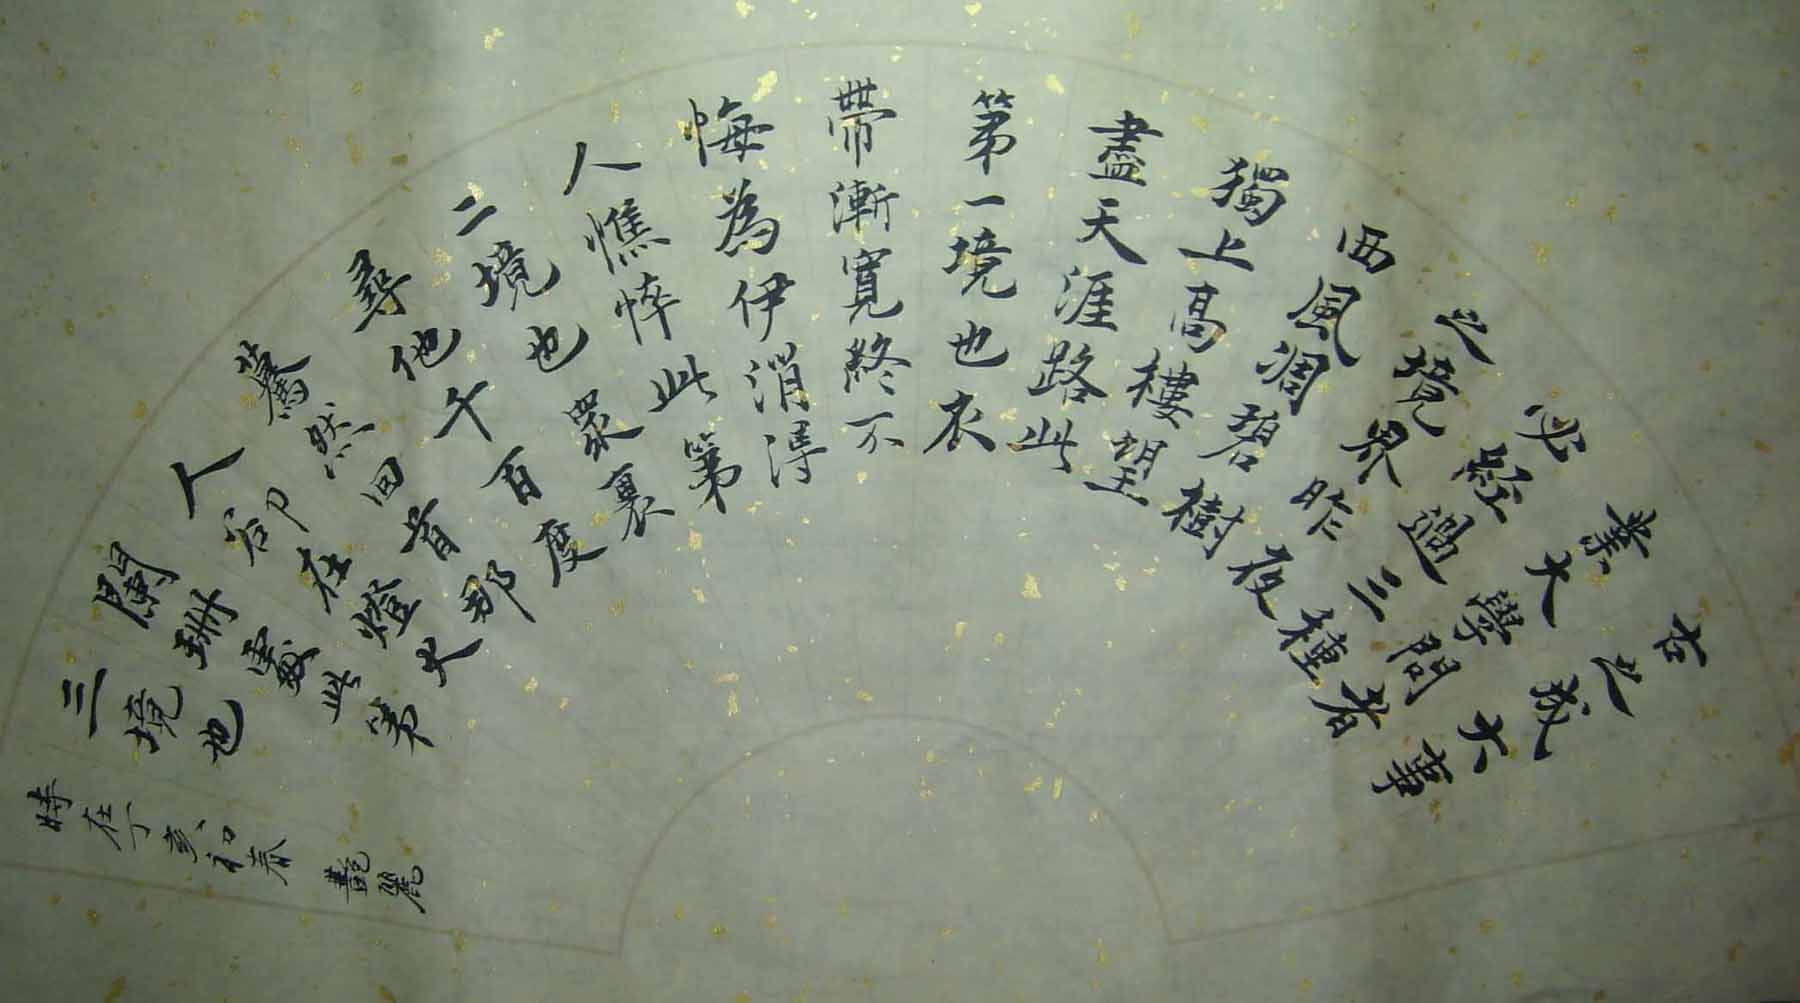 古之成大事
業大學問者
必經過三種
之境界昨夜
西風凋碧樹
獨上高樓望
盡天涯路此
第一境也衣
帶漸寬終不
悔為伊消得
人憔悴此第
二境也眾裏
尋他千百度
驀然回首那
人卻在燈火
闌珊處此第
三境也
時在丁亥初春 艷麗